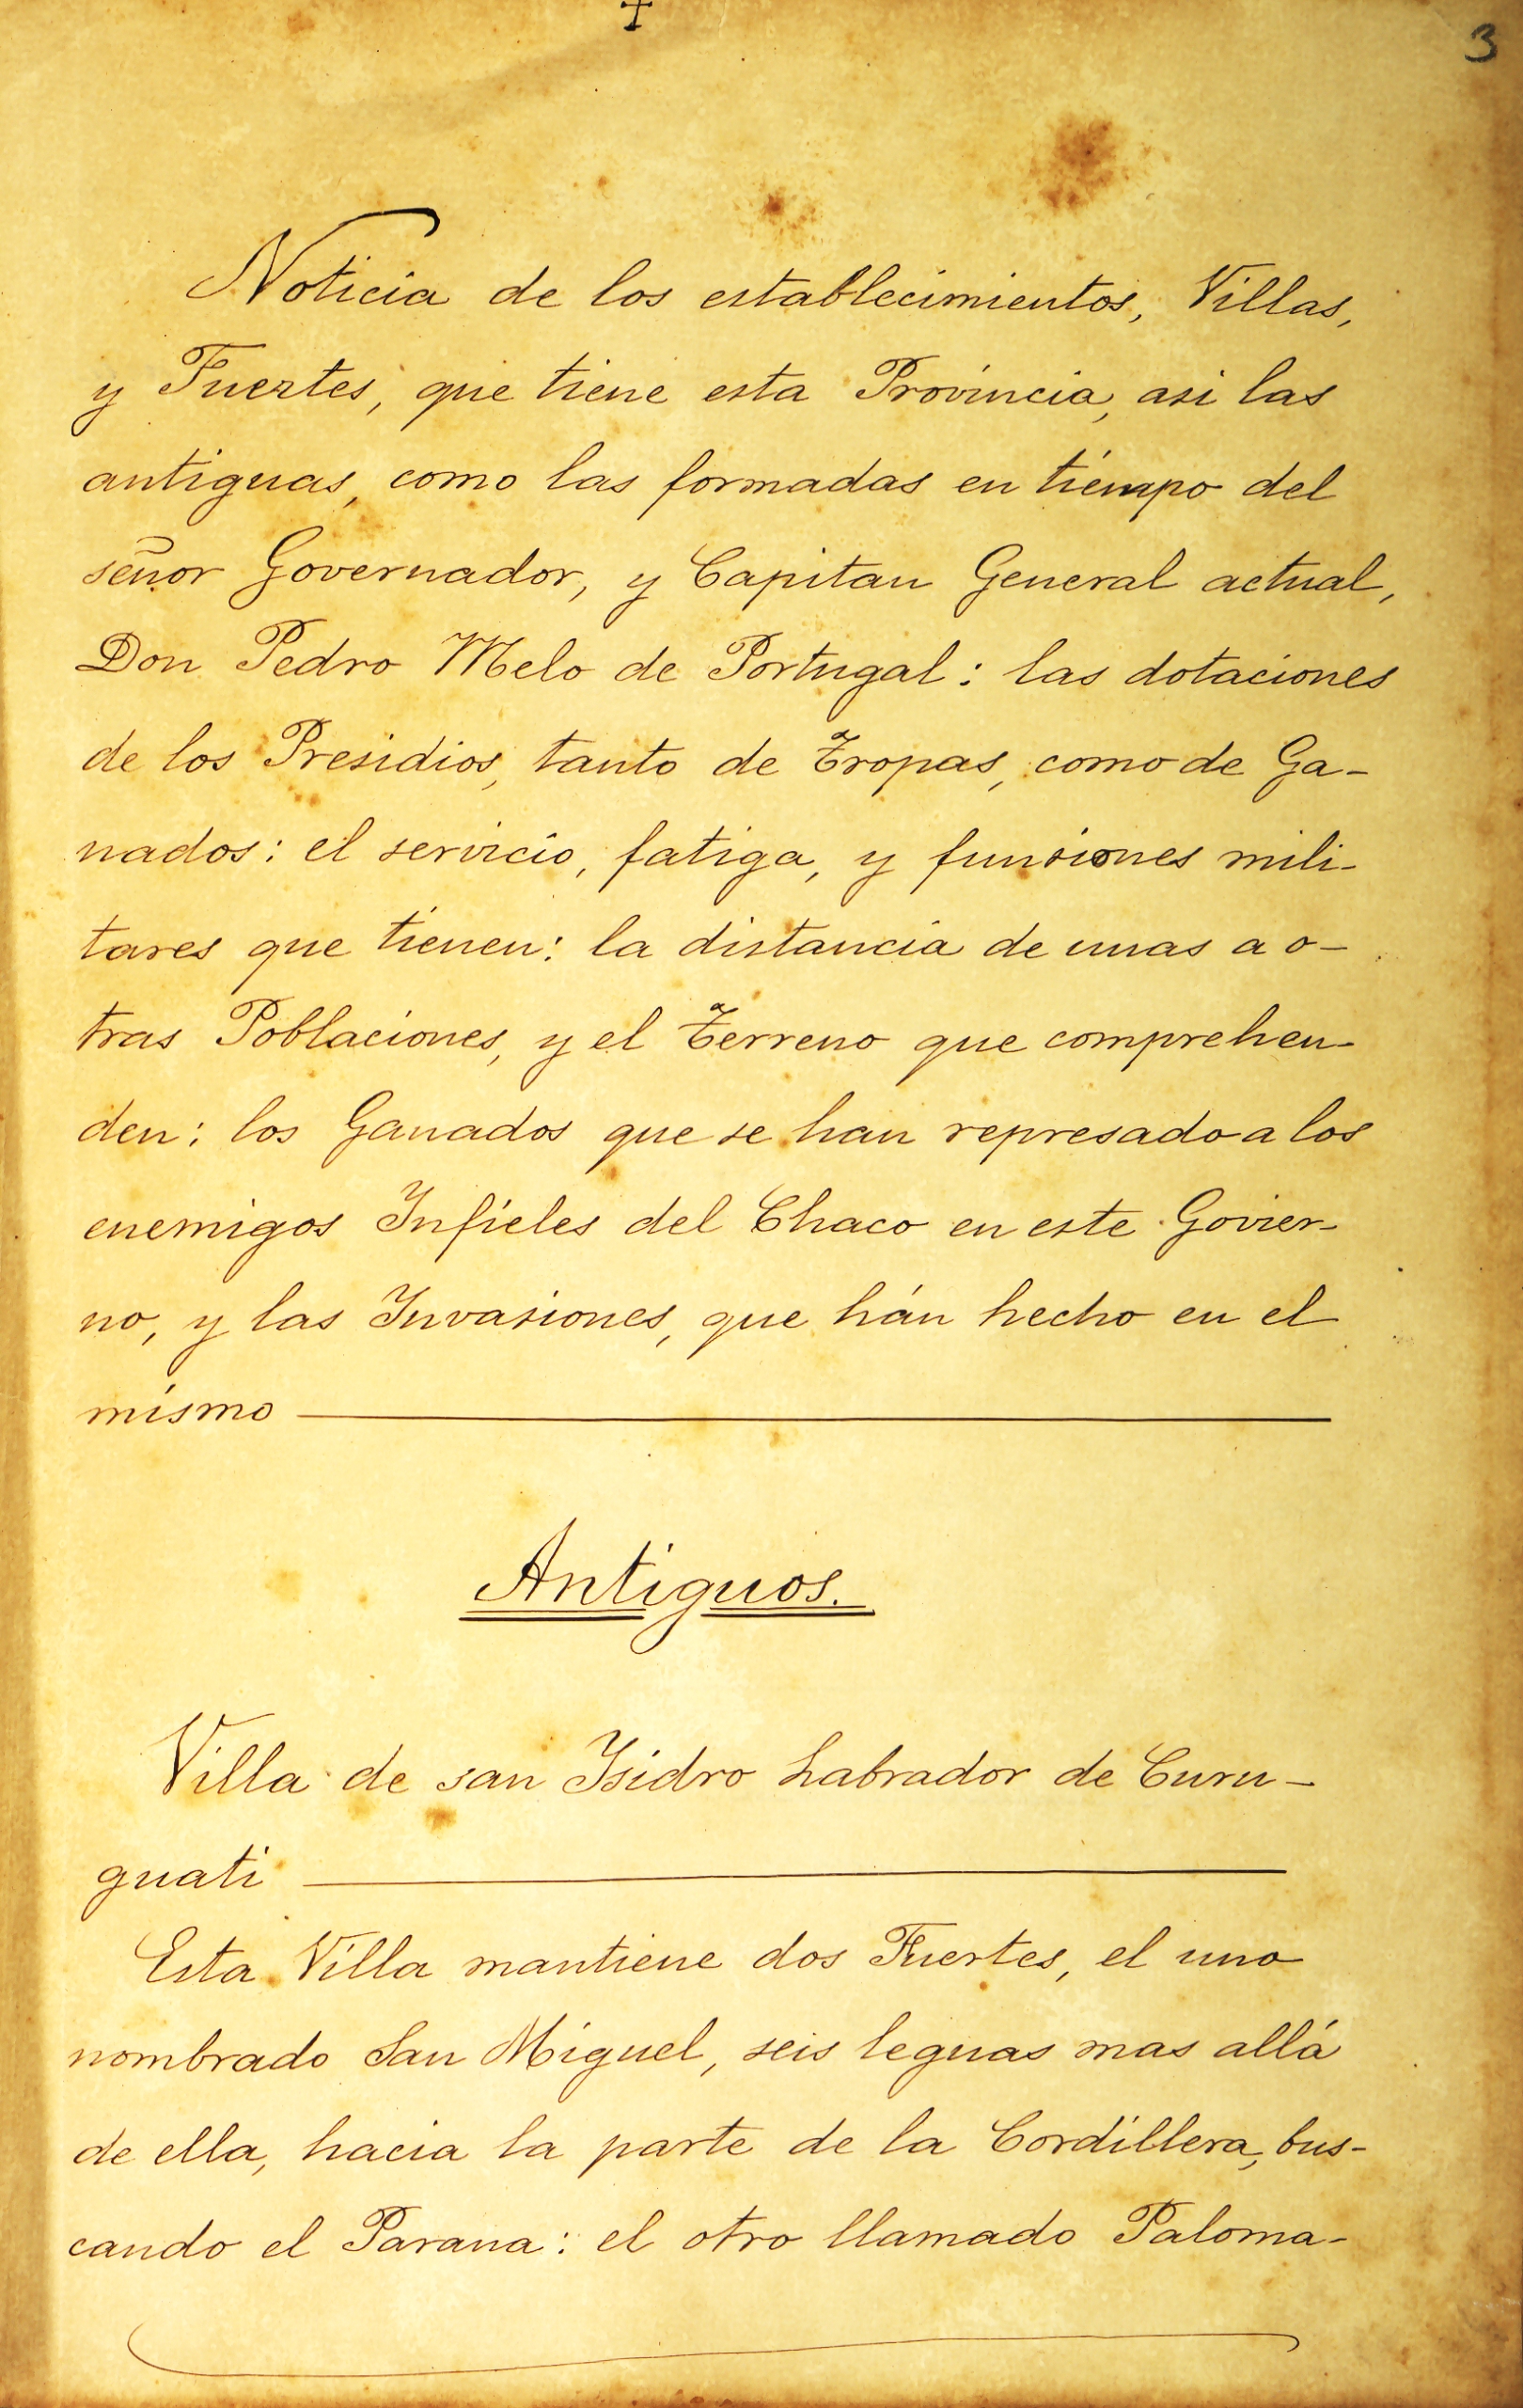 3
Noticia de los establecimientos, Villas,
y Fuertes, que tiene esta Provincia, asi las
antiguas, como las formadas en tiempo del
señor Governador, y Capitan General actual,
Don Pedro Melo de Portugal: las dotaciones
de los Presidios, tanto de Tropas, como de Ga-
nados: el servicio, fatiga, y funsiones mili-
tares que tienen: la distancia de unas a o-
tras Poblaciones, y el Terreno que comprehen-
den: los Ganados que se han represado a los
enemigos Infieles del Chaco en este Govier-
no, y las Invasiones, que hán hecho en el
mismo
Antiguos.
Villa de san Isidro Labrador de Curu-
guati
Esta Villa mantiene dos Fuertes, el uno
nombrado San Miguel, seis leguas mas allá
de ella, hacia la parte de la Cordillera, bus-
cando el Parana: el otro llamado Paloma-